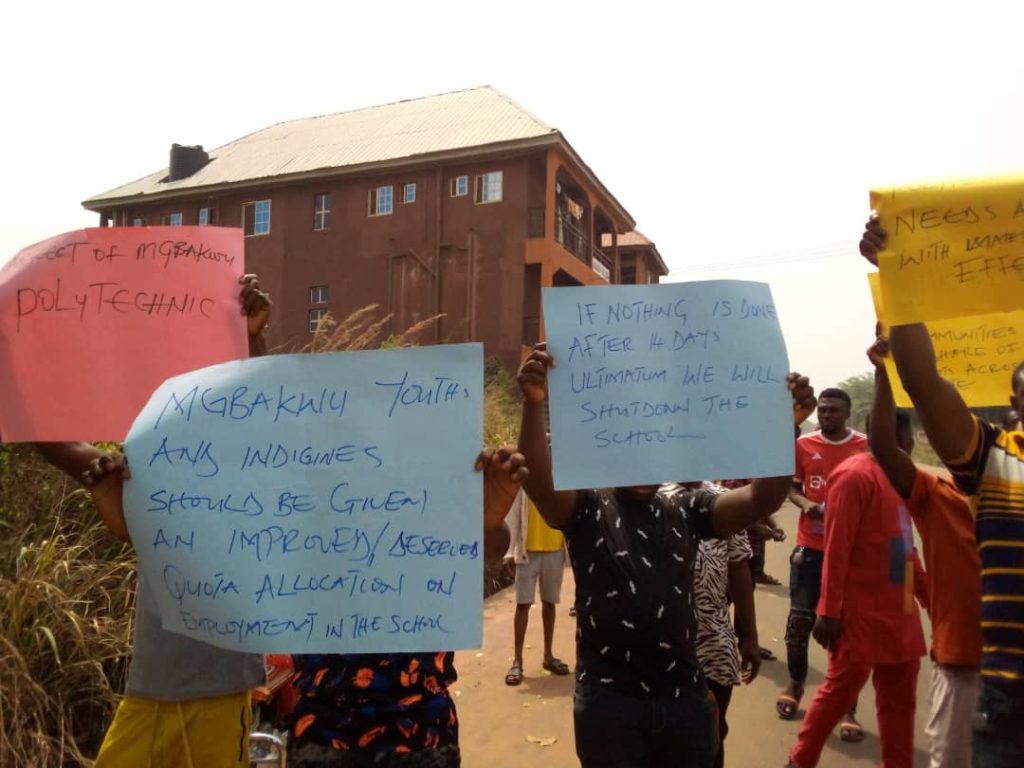 ECT OF MGBAKWU
POLYTECHNIC
MGBAKWU YOUTHS
AND INDIGINES
SHOULD BE GIVEN
AN IMPROVED/DESERVED
QUOTA ALLOCATION ON
EMPLOYMENT IN THE SCHOOL
IF NOTHING IS DONE
AFTER 14 DAYS
ULTIMATUM WE WILL
SHUTDOWN THE
SCHOOL
NEEDS A
WITH IMME
EFFE
MMUNITIES
HARE OF
TS ACROS